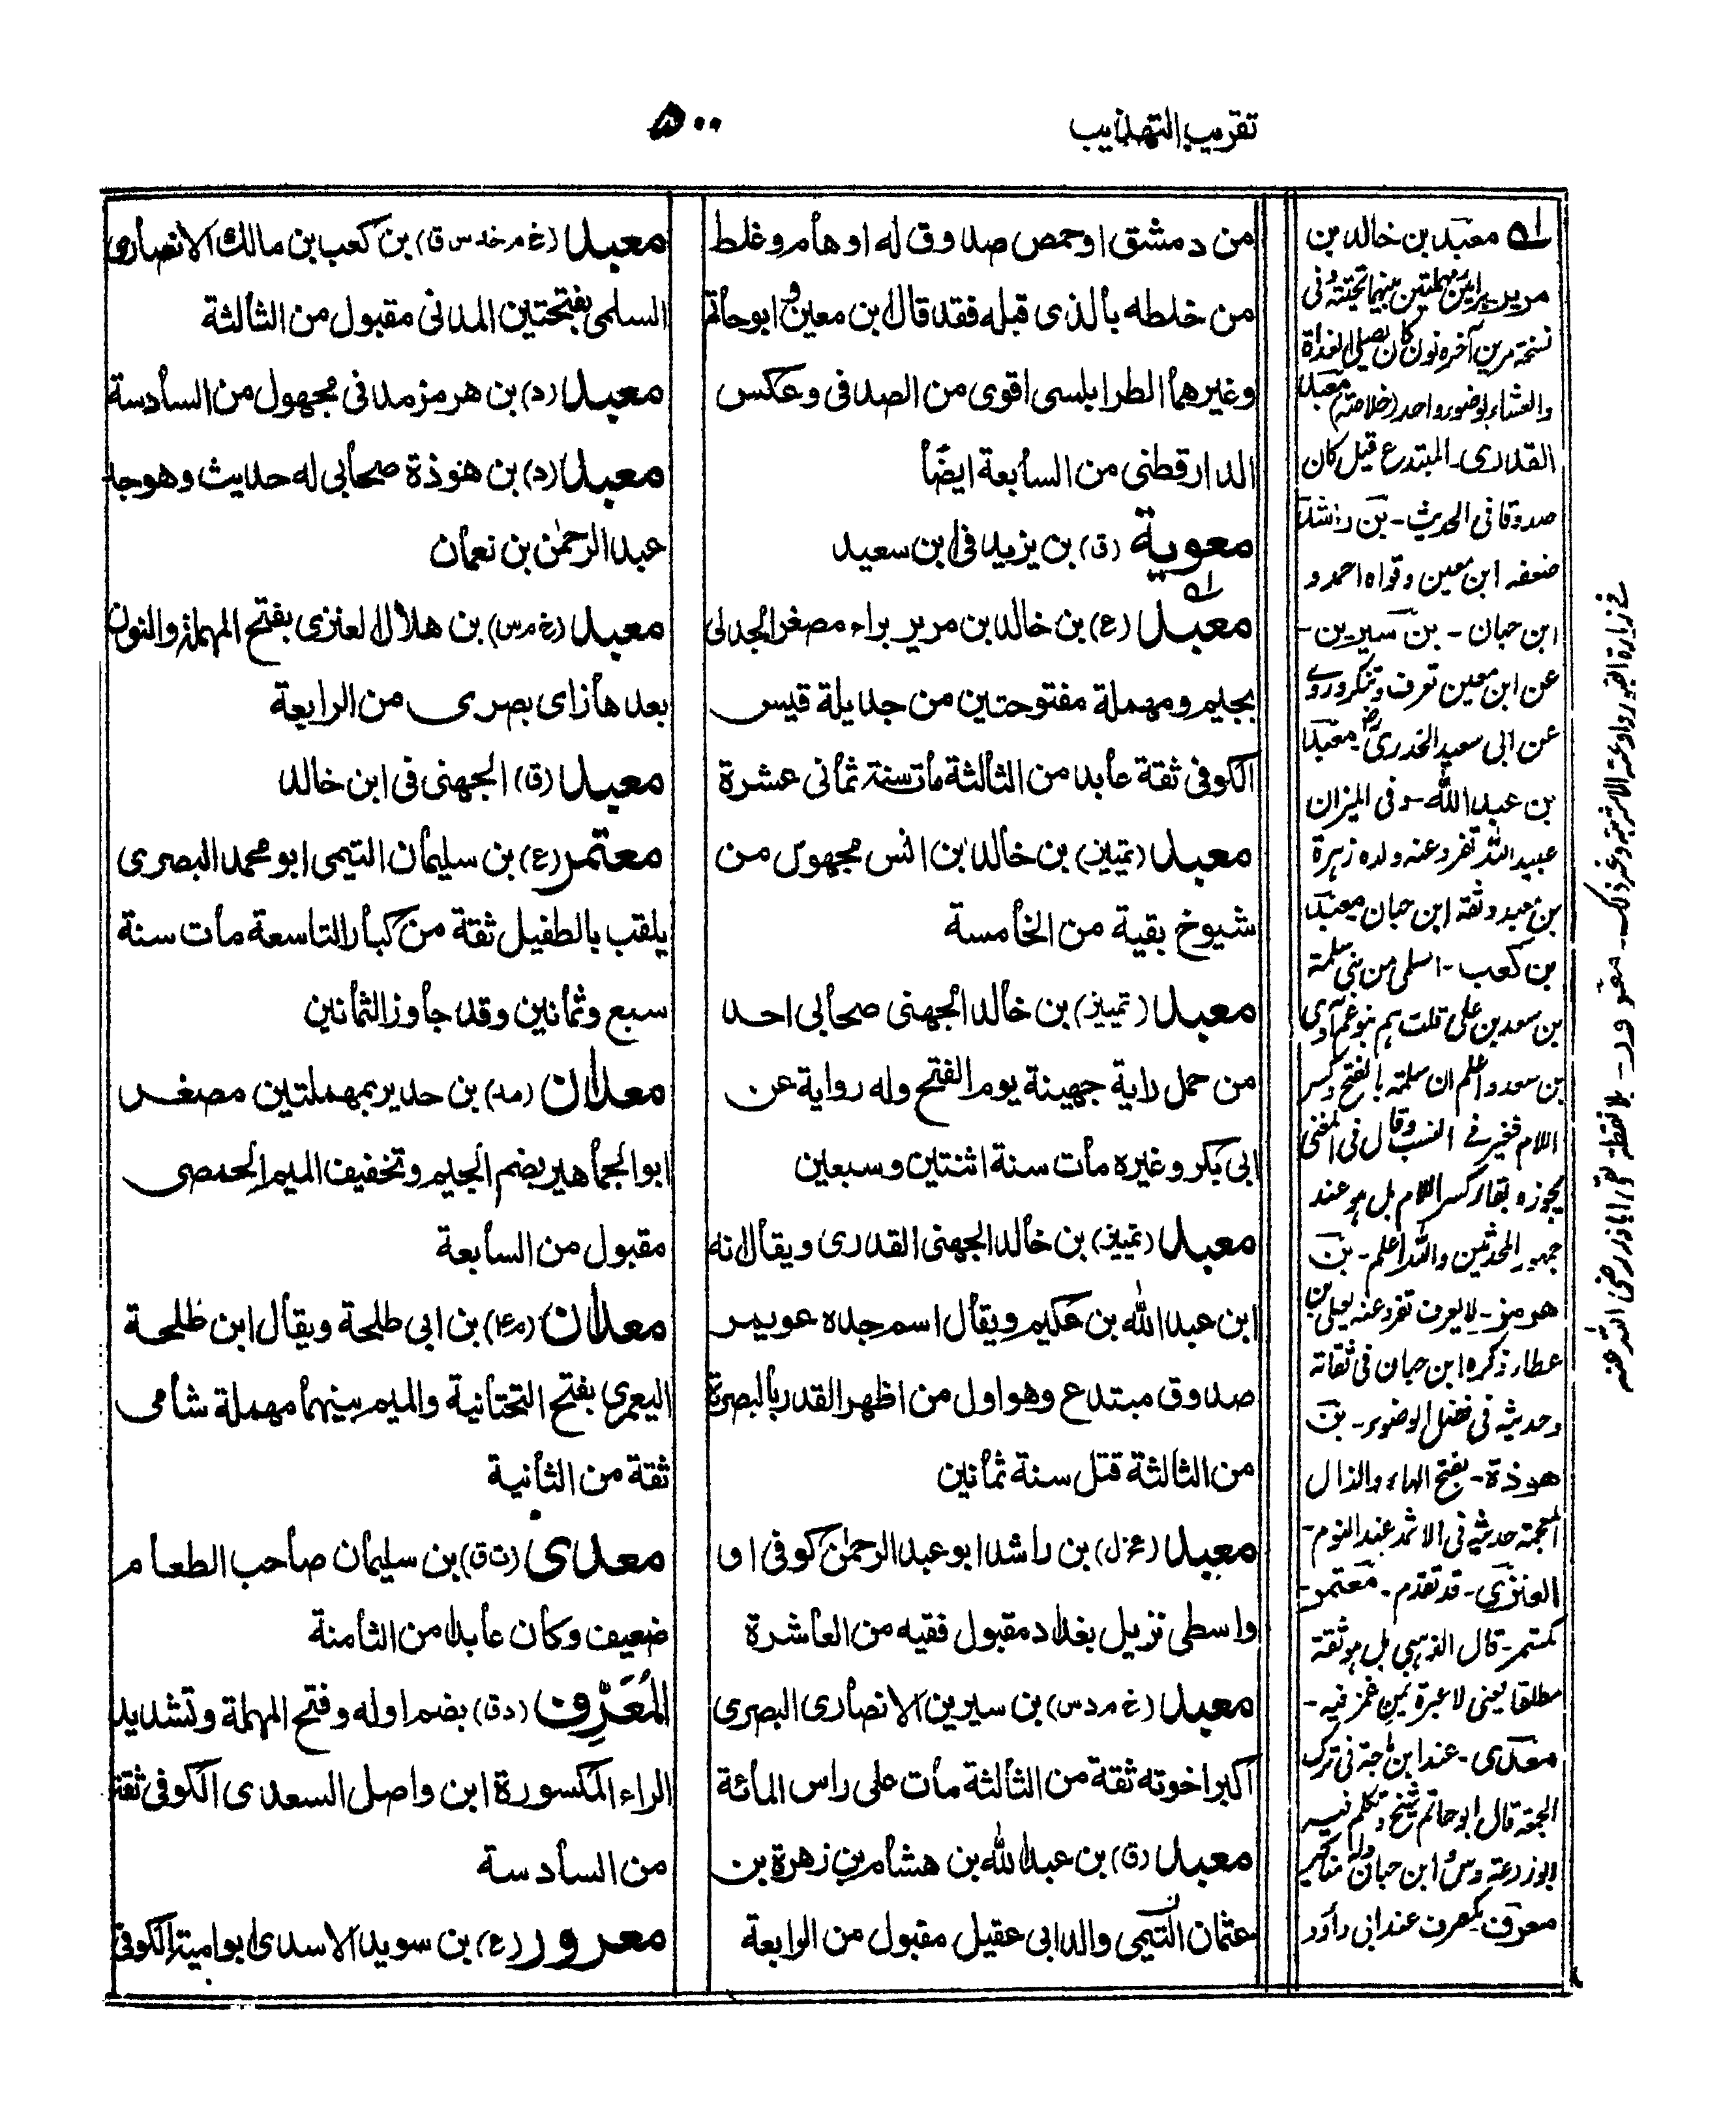 تقريب التهذيب
۵۰۰
من دمشق او حمص صدوق له اوهام وغلط
من خلطه بالذى قبله فقد قال ابن معين وابوحاتم
وغيرهما الطرابلسى اقوى من الصدفى وعكس
الدارقطنى من السابعة ايضًا
معوية (ق) بن يزيد فى ابن سعيد
معبد (ع) بن خالد بن مرير براء مصغر الجدلى
بجليم ومهملة مفتوحتين من جديلة قيس
الكوفى ثقة عابد من الثالثة مات سنة ثمانى عشرة
معبد (تمييز) بن خالد بن انس مجهول من
شيوخ بقية من الخامسة
معبد (تمييز) بن خالد الجهنى صحابى احد
من حمل راية جهينة يوم الفتح وله رواية عن
ابى بكر وغيره مات سنة اثنتين وسبعين
معبد (تمييز) بن خالد الجهنى القدرى ويقال انه
ابن عبد الله بن عكيم ويقال اسم جده عويمر
صدوق مبتدع وهو اول من اظهر القدر بالبصرة
من الثالثة قتل سنة ثمانين
معبد بن راشد ابو عبد الرحمٰن كوفى او
واسطى نزيل بغداد مقبول فقيه من العاشرة
معبد (خ م د س) بن سيرين الانصارى البصرى
اكبر اخوته ثقة من الثالثة مات على راس المائة
معبد (ق) بن عبد الله بن هشام بن زهرة بن
عثمان التيمى والد ابى عقيل مقبول من الرابعة
معبد (خ م خد س ق) بن كعب بن مالك الانصارى
السلمى بفتحتين المدنى مقبول من الثالثة
معبد (د) بن هرمز مدنى مجهول من السادسة
معبد (د) بن هوذة صحابى له حديث وهو جد
عبد الرحمٰن بن نعمان
معبد (خ م س) بن هلال العنزى بفتح المهملة والنون
بعدها زاى بصرى من الرابعة
معبد (ق) الجهنى فى ابن خالد
معتمر (ع) بن سليمان التيمى ابو محمد البصرى
يلقب بالطفيل ثقة من كبار التاسعة مات سنة
سبع وثمانين وقد جاوز الثمانين
معدان (مد) بن حدير بمهملتين مصغر
ابو الجماهير بضم الجيم وتخفيف الميم الحمصى
مقبول من السابعة
معدان (م ع) بن ابى طلحة ويقال ابن طلحة
اليعمرى بفتح التحتانية والميم بينهما مهملة شامى
ثقة من الثانية
معدى (ت ق) بن سليمان صاحب الطعام
ضعيف وكان عابدا من الثامنة
المُعَرِّف (د ق) بضم اوله وفتح المهملة وتشديد
الراء المكسورة ابن واصل السعدى الكوفى ثقة
من السادسة
معرور (ع) بن سويد الاسدى ابو امية الكوفى
معبد بن خالد بن
مرير براءين مهملتين بينهما تحتية وفى
نسخة مرين آخره نون كان يصلى الغداة
والعشاء بوضوء واحد (خلاصة) معبد
القدرى۔ المبتدع قيل كان
صدوقا فى الحديث۔ بن راشد
ضعفه ابن معين وقواه احمد و
ابن حبان۔ بن سيرين۔
عن ابن معين تعرف وتنكر وروى
عن ابى سعيد الخدرىؓ۔ معبد
بن عبد الله۔ وفى الميزان
عبيد الله تفرد عنه ولده زهرة
بن معبد وثقه ابن حبان معبد
بن كعب۔ اسلمى من بنى سلمة
بن سعد بن على قلت هم بنو عم
بن سعد واعلم ان سلمة بالفتح وكسر
اللام فغير فى النسب وقال فى المغنى
يجوزه بقاء كسر اللام بل هو عند
جمهور المحدثين والله اعلم۔ بن
هرمز۔ لا يعرف تفرد عنه يعلى بن
عطاء ذكره ابن حبان فى ثقاته
وحديثه فى فضل الوضوء۔ بن
هوذة۔ بفتح الهاء والذال
المعجمة حديثه فى الاثمد عند النوم۔
العنزى۔ قد تقدم۔ معتمر۔
كمستمر۔ قال الذهبى بل هو ثقة
مطلقا يعنى لا عبرة بمن غمز فيه۔
معدى۔ عند ابن ماجة فى ترك
الجمعة قال ابو حاتم شيخ وتكلم فيه
ابو زرعة ومن ابن حبان وله مناكير
معرف كمعرف عند ابى داؤد
فى زيارة القبور وداود عنه الاشربة وغير ذلك۔ معرور۔ بلا نقطة لقى اباذر رضى الله عنه